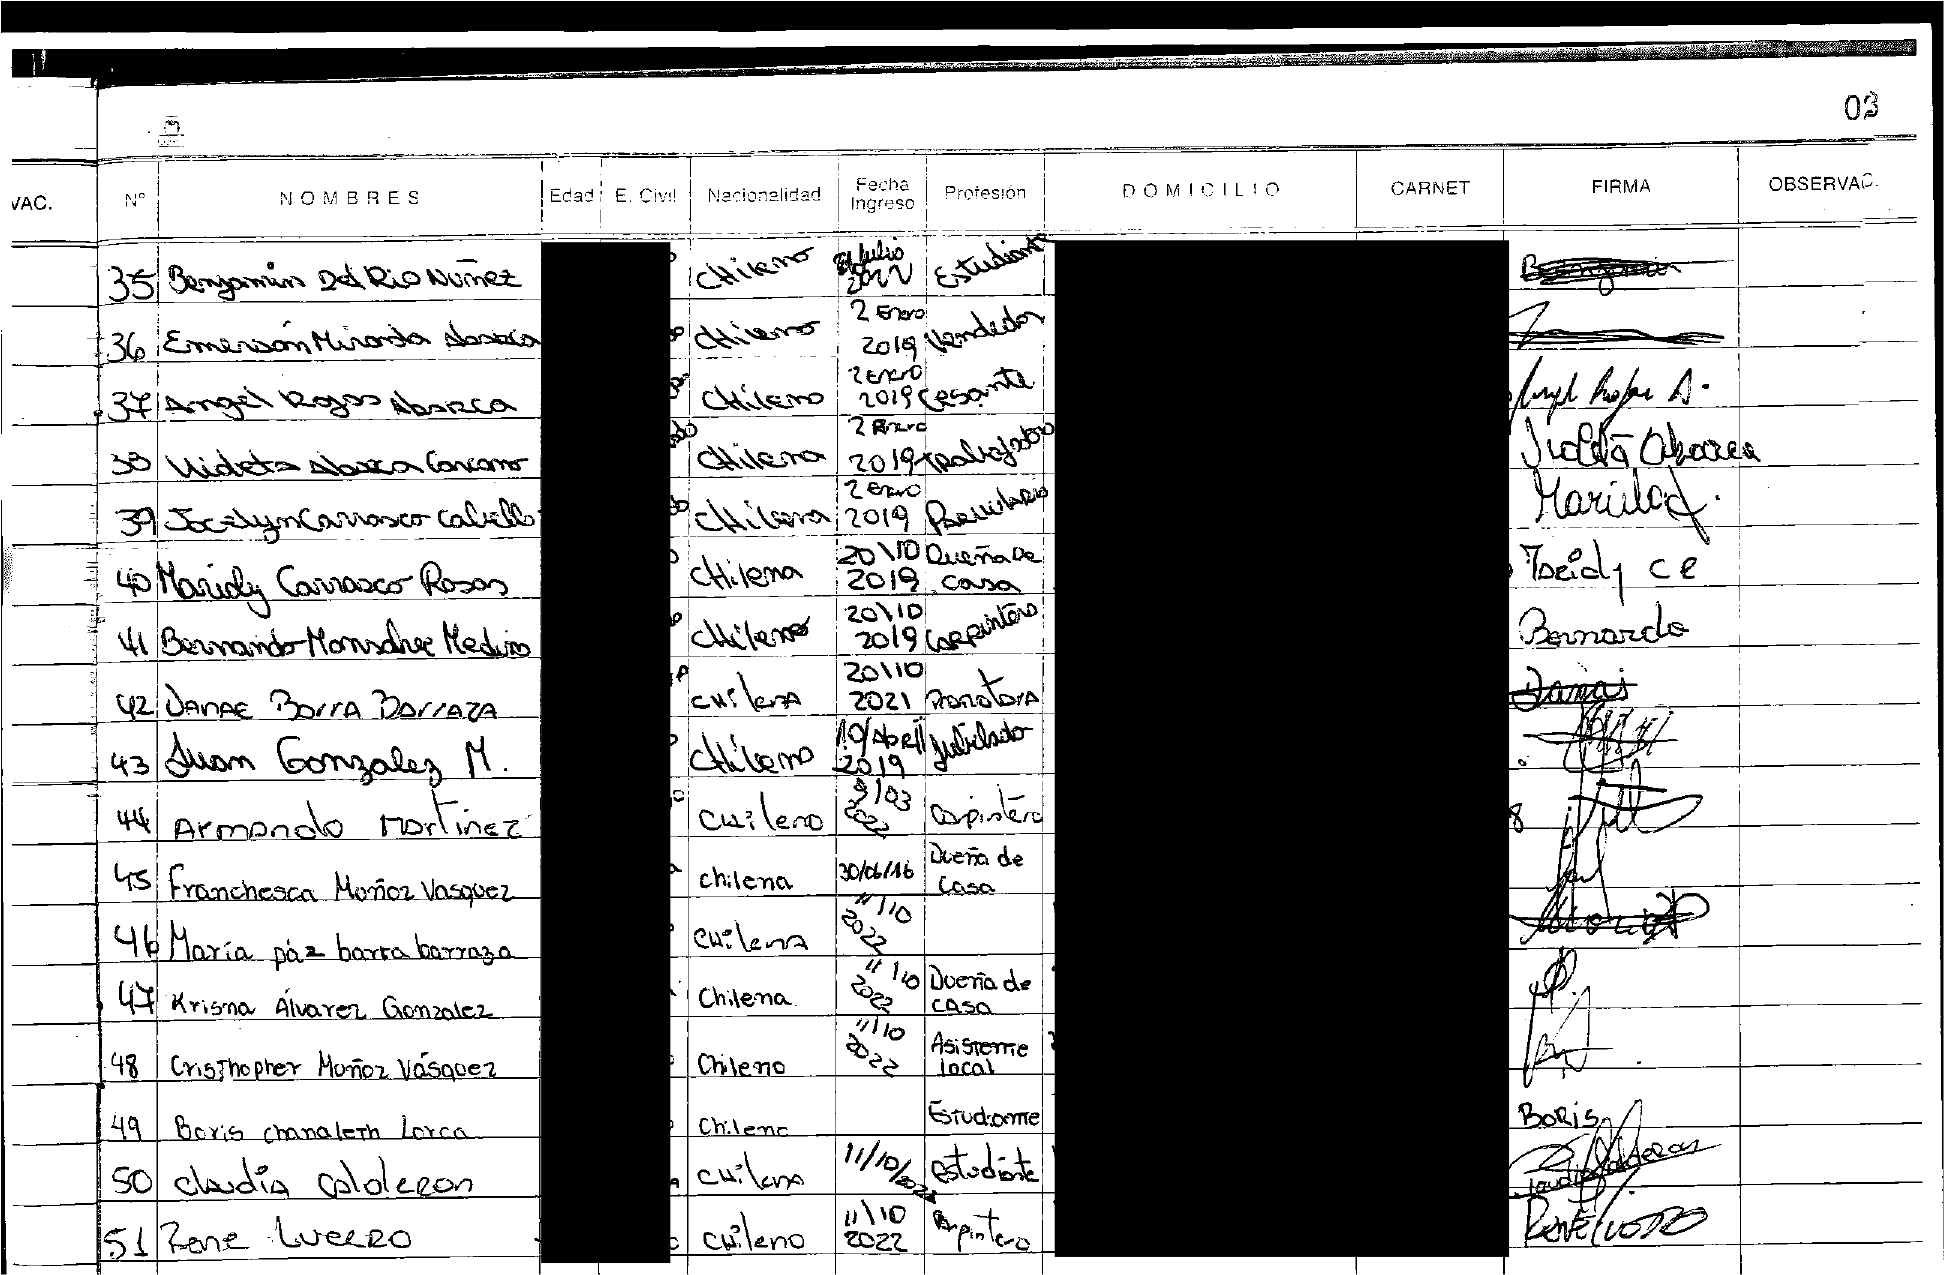 03
VAC. Nº NOMBRES Edad E. Civil Nacionalidad Fecha Ingreso Profesión DOMICILIO CARNET FIRMA OBSERVAC.
35 Benjamín Del Rio Nuñez Chileno Julio 2022 Estudiante
36 Emerson Miranda Abarca Chileno 2 Enero 2019 Vendedor
37 Angel Rojas Abarca Chileno 2 Enero 2019 Cesante Angel Rojas A.
38 Violeta Abarca Carcamo Chilena 2 Enero 2019 trabajadora Violeta Abarca
39 Jocelyn Carrasco Cabello Chilena 2 Enero 2019
40 Maridy Carrasco Rosas Chilena 20\10 2019 Dueña De casa
41 Bernardo Chileno 20\10 2019 Carpintero Bernardo
42 DANAE Barra Barraza chilena 20\10 2021 Promotora
43 Juan Gonzalez M. Chileno 10/Abril 2019 Jubilado
44 Armando Martinez chileno 9/03 2022 Carpintero 8
45 Franchesca Muñoz Vasquez chilena 30/06/16 Dueña de casa
46 María páz barra barraza chilena 11/10 2022
47 Krisna Álvarez Gonzalez Chilena 11/10 2022 Dueña de casa
48 Cristhopher Muñoz Vásquez Chileno 11/10 2022 Asistente local
49 Boris chanaleth Lorca Chileno Estudiante Boris
50 claudia calderon chilena 11/10/2022 estudiante
51 Rene Lucero chileno 11\10 2022 Carpintero